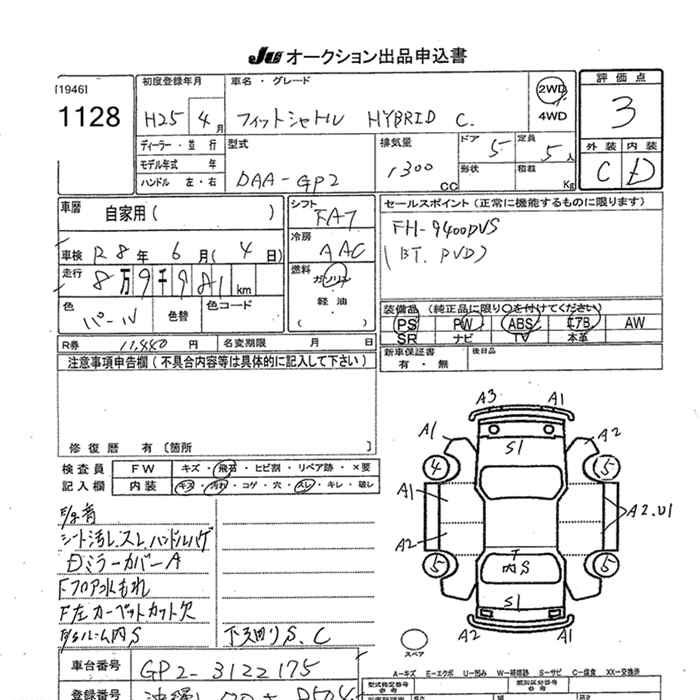 JU オークション出品申込書
[1946]
1128
初度登録年月
H25 4月
車名・グレード
フィットシャトル HYBRID C.
2WD
4WD
評価点
3
外装 内装
C D
ディーラー・並行
モデル年式 年
ハンドル 左・右
型式
DAA-GP2
排気量
1300
CC
ドア 5
形状
定員 5人
積載 Kg
車歴 自家用( )
車検 R8年 6月(4日)
走行 8万9千9 81 km
色 パール
色替
色コード
シフト FAT
冷房 AAC
燃料 ガソリン
軽油
( )
セールスポイント(正常に機能するものに限ります)
FH-9400DVS
(BT. DVD)
装備品(純正品に限り○を付けてください)
PS PW ABS エアB AW
SR ナビ TV 本革
新車保証書
有・無
後日品
R券 11,440円
名変期限 月 日
注意事項申告欄(不具合内容等は具体的に記入して下さい)
修復歴 有〔箇所 〕
検査員 FW キズ・飛石・ヒビ割・リペア跡・×要
記入欄 内装 キズ・汚れ・コゲ・穴・スレ・キレ・破レ
シート汚レ、スレ、ハンドルハゲ
Dミラーカバー A
Fフロア水もれ
F左カーペットカット欠
ルーム内S
下廻りS、C
A3 A1
A1 A2
S1
4 5
A1
A2.U1
A2
T
内S
5 5
S1
A2 A1
スペア
車台番号 GP2-3122175
登録番号
A-キズ E-エクボ U-凹み W-補修跡 S-サビ C-腐食 X-要 XX-交換渉
型式指定番号
参考
類別区分番号
参考